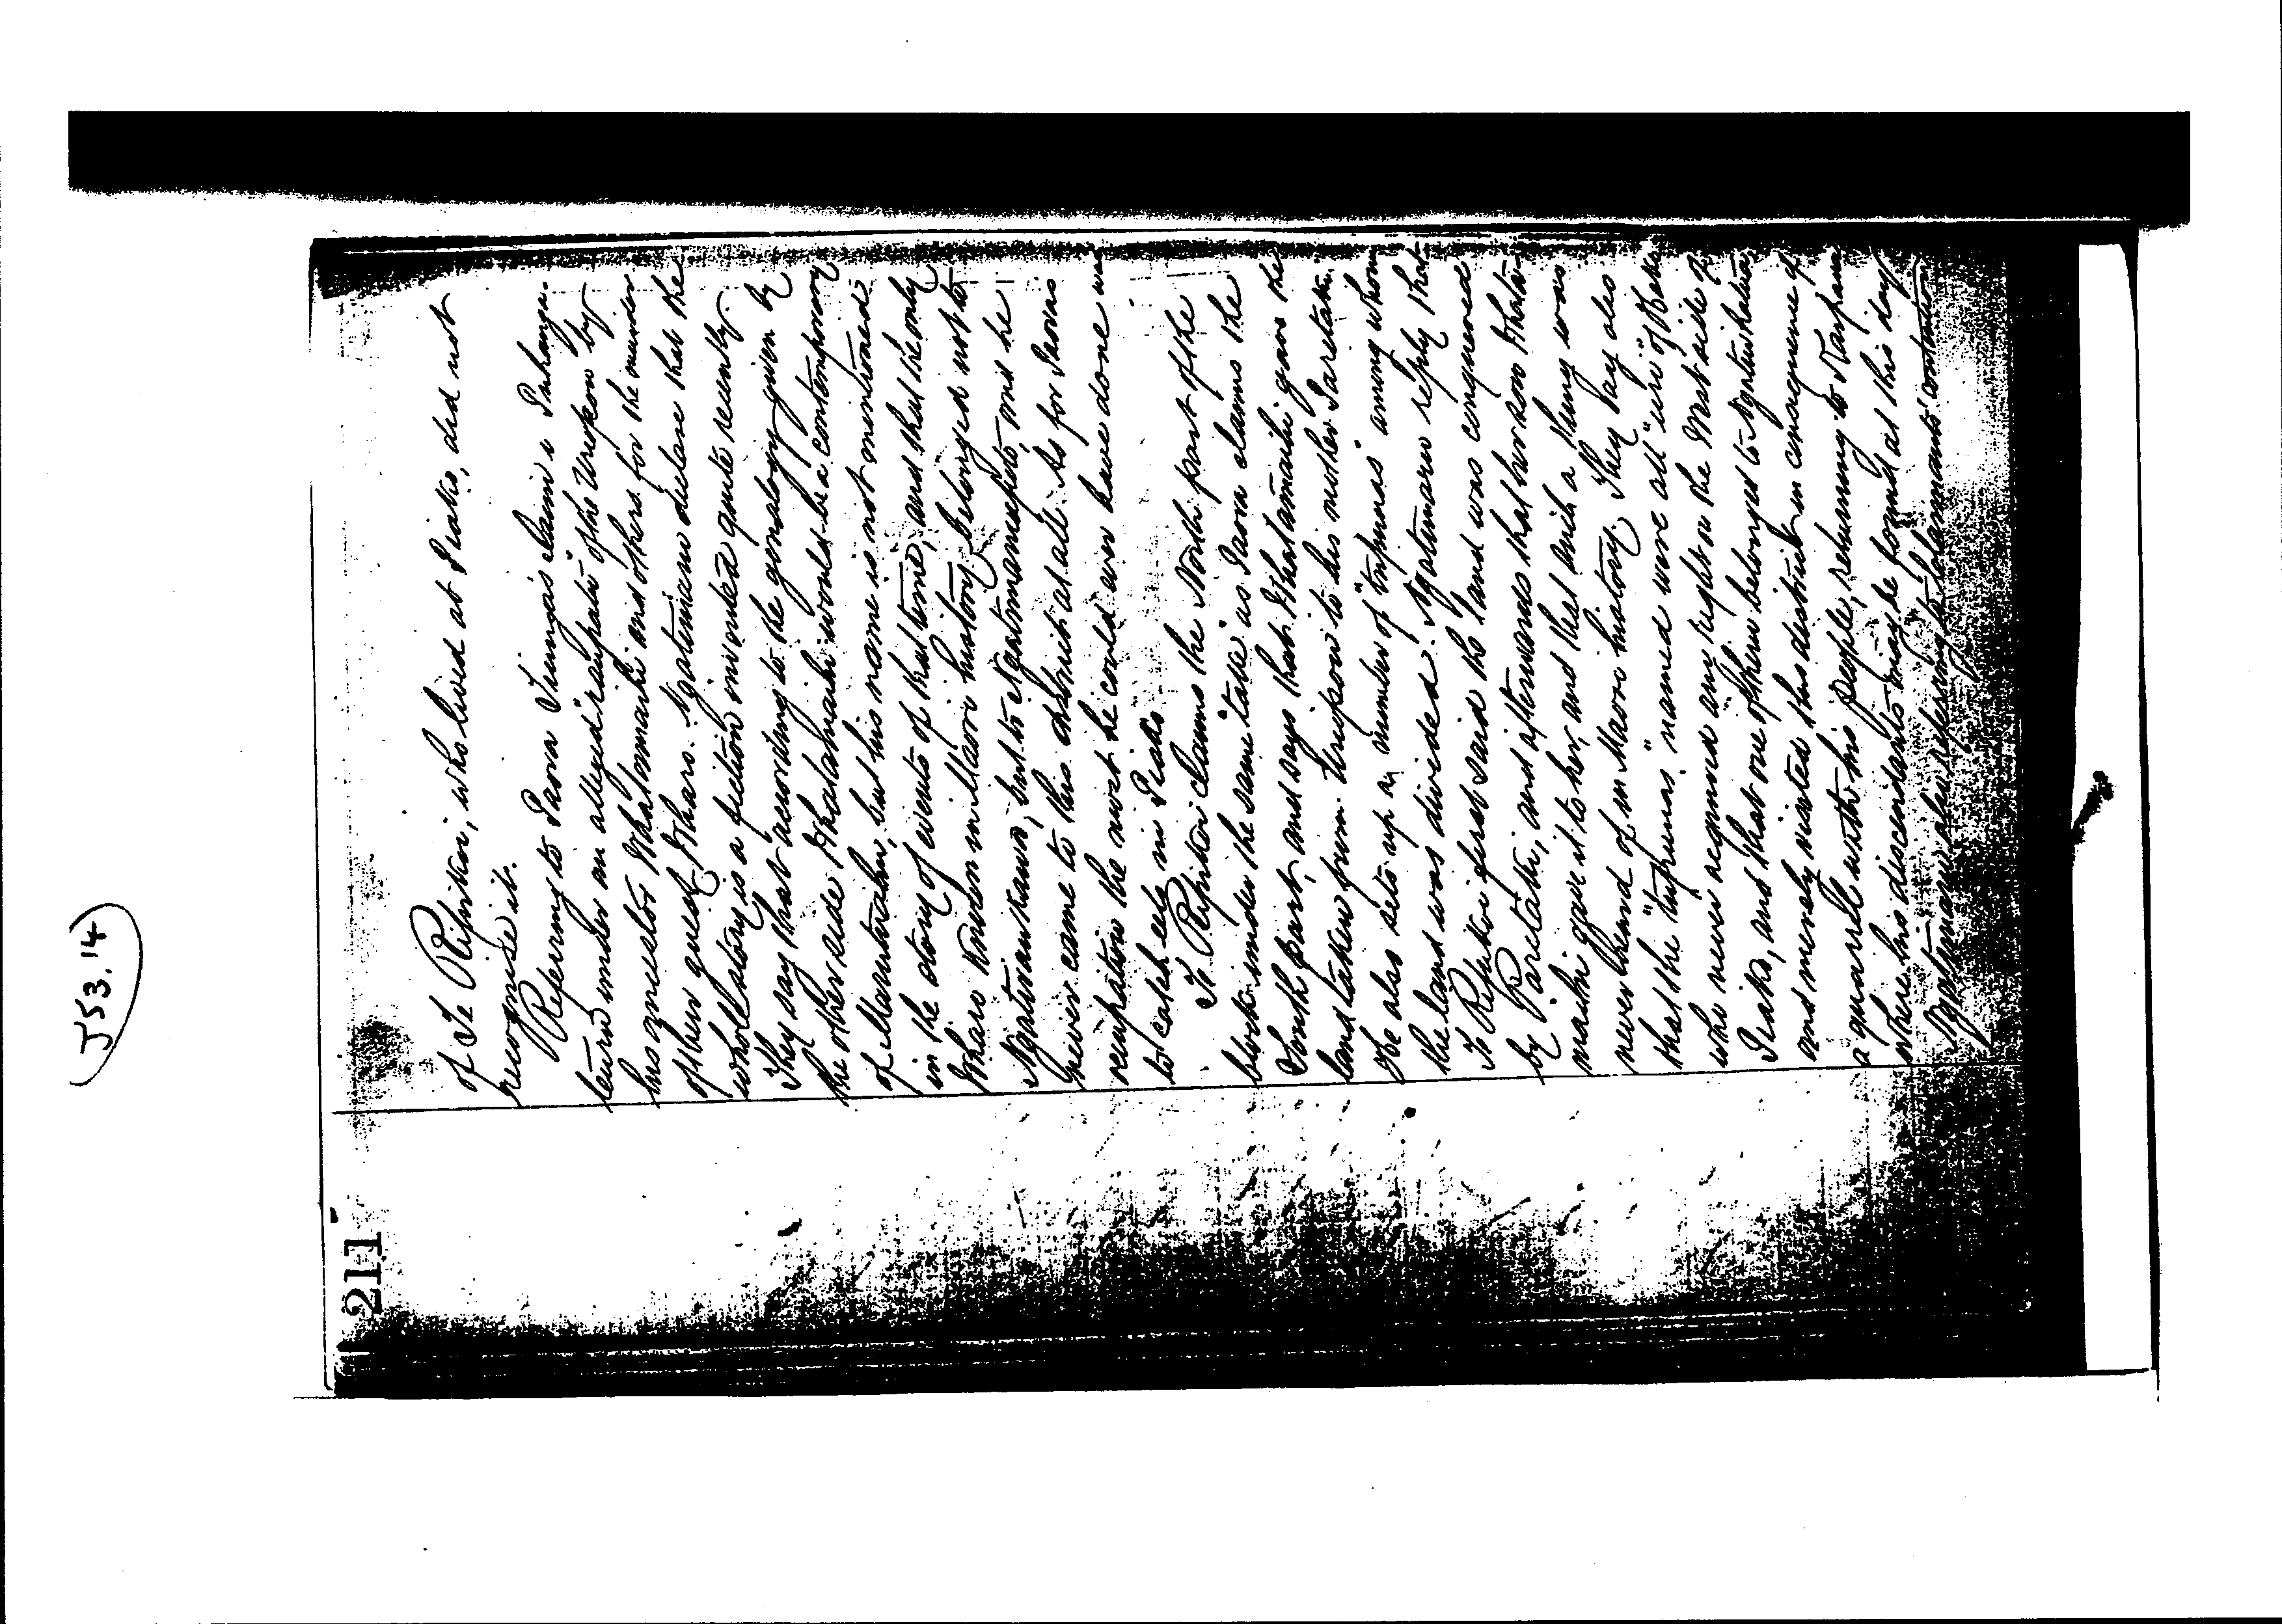 J53.14
211
of Te Pipikoi, who lived at Piako, did not
recognise it.
Referring to Paora claim
under an alleged raupatu of the by
his ancestor Whatamaihi and others for the murder
of their guest Wharo. Ngatimaru declare that the
whole story is a fiction invented quite recently.
They say that according to the genealogy given by
the other side Whatamaihi would be a contemporary
of but his name is not mentioned
in the story of events of that time, and that the only
Wharo known in Maori history belonged not to
but to and he
never came to this district at all. As for Paora's
occupation the most he could ever have done was
to catch eels in Piako.
Te Pipikoi claims the North part of the
block under the same "take" as Paora claims the
South part, and says that Whatamaihi gave the
land taken from to his mother
He also sets up a number of "tupunas" among whom
the land was divided. Ngatimaru reply that
Te Pipikoi first said the land was conquered
by and afterwards that
maihi gave it to her, and that such a thing was
never heard of in Maori history. They say also
that the "tupunas" named were all "uri" of
who never acquired any right on the West side of
Piako, and that one of them belonged to
and merely visited this district in consequence of
a quarrel with his people, returning to
where his descendants may be found at this day.
Ngatimaru also referring to claimants' contention